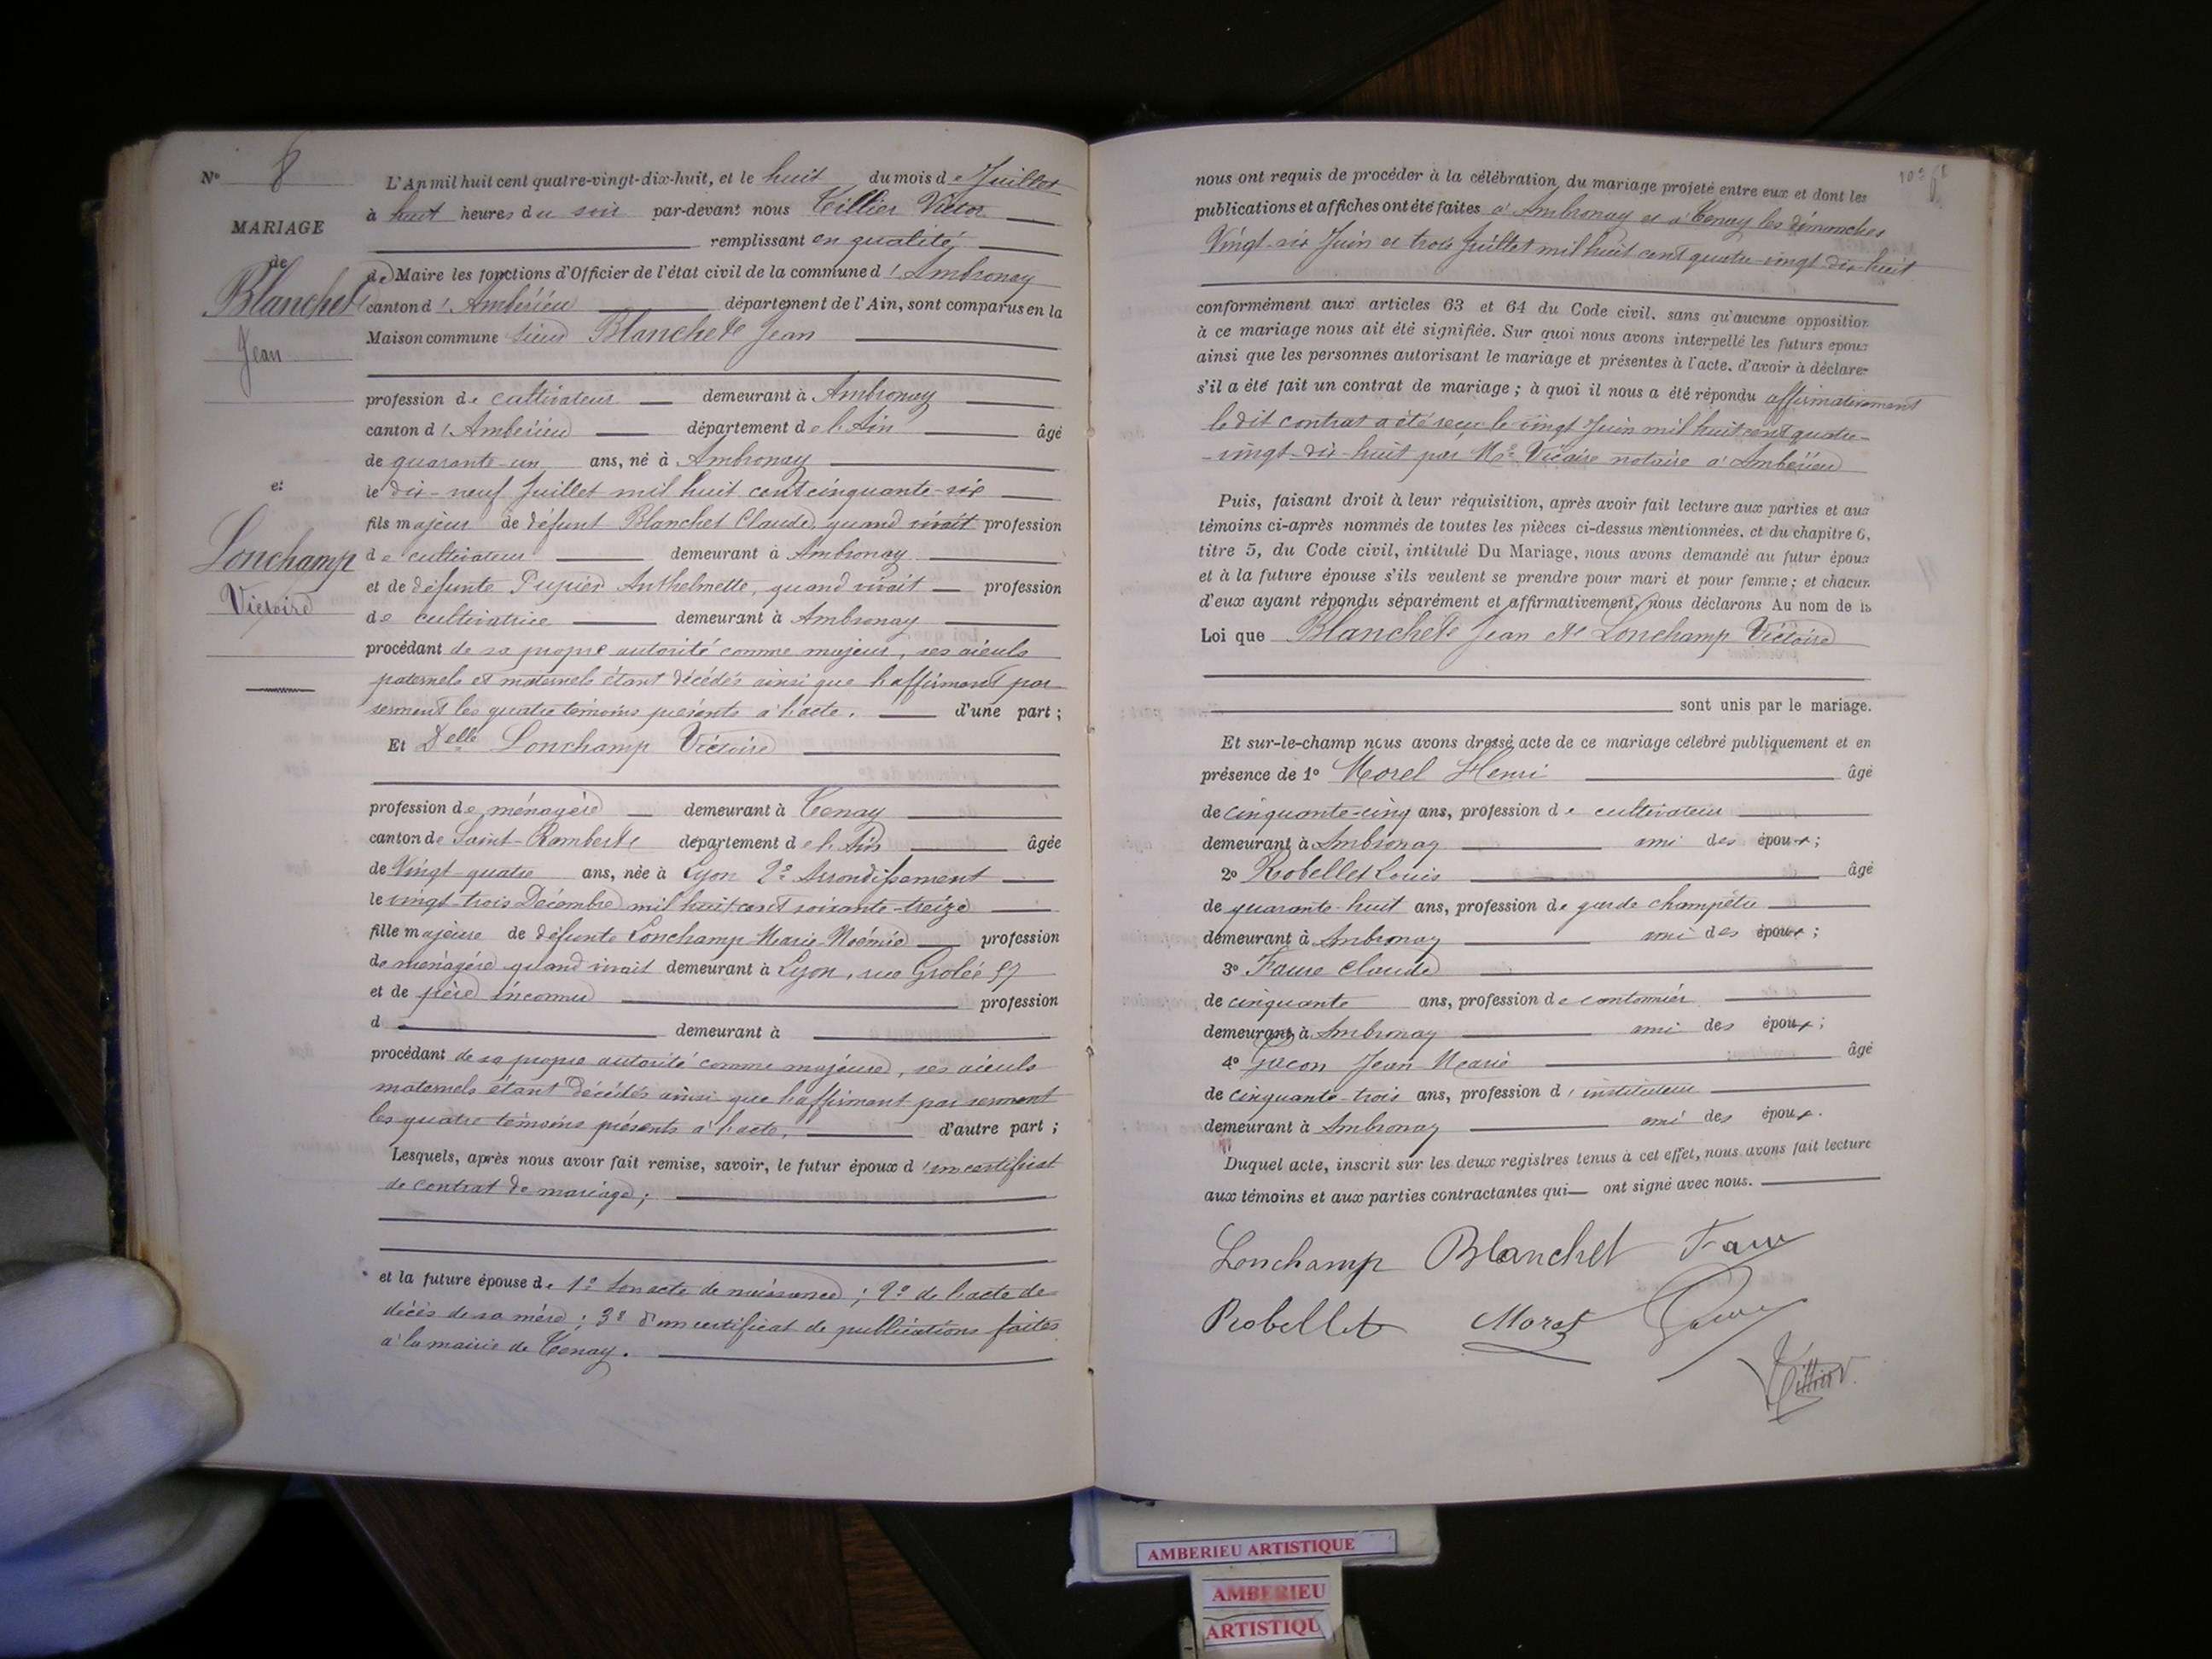 N° 8
MARIAGE
de
Blanchet
Jean
et
Lonchamp
Victoire
L'An mil huit cent quatre-vingt-dix-huit, et le huit du mois de Juillet
à huit heures du soir par-devant nous Tillier Victor
remplissant en qualité
de Maire les fonctions d'Officier de l'état civil de la commune d'Ambronay
canton d'Ambérieu département de l'Ain, sont comparus en la
Maison commune sieur Blanchet Jean
profession de cultivateur demeurant à Ambronay
canton d'Ambérieu département de l'Ain âgé
de quarante-un ans, né à Ambronay
le dix-neuf Juillet mil huit cent cinquante-six
fils majeur de défunt Blanchet Claude, quand vivait profession
de cultivateur demeurant à Ambronay
et de défunte Pupier Anthelmette, quand vivait profession
de cultivatrice demeurant à Ambronay
procédant de sa propre autorité comme majeur, ses aïeuls
paternels et maternels étant décédés ainsi que l'affirment par
serment les quatre témoins présents à l'acte. d'une part ;
Et Delle Lonchamp Victoire
profession de ménagère demeurant à Tenay
canton de Saint-Rambert département de l'Ain âgée
de Vingt-quatre ans, née à Lyon 2e Arrondissement
le vingt-trois Décembre mil huit cent soixante-treize
fille majeure de défunte Lonchamp Marie Noémie profession
de ménagère quand vivait demeurant à Lyon, rue Grolée 57
et de père inconnu profession
d demeurant à
procédant de sa propre autorité comme majeure, ses aïeuls
maternels étant décédés ainsi que l'affirment par serment
les quatre témoins présents à l'acte, d'autre part ;
Lesquels, après nous avoir fait remise, savoir, le futur époux d'un certificat
de contrat de mariage ;
et la future épouse de 1° son acte de naissance ; 2° de l'acte de
décès de sa mère ; 3° d'un certificat de publications faites
à la mairie de Tenay.
nous ont requis de procéder à la célébration du mariage projeté entre eux et dont les
publications et affiches ont été faites à Ambronay et à Tenay les dimanches
Vingt-six Juin et trois Juillet mil huit cent quatre-vingt-dix-huit
conformément aux articles 63 et 64 du Code civil, sans qu'aucune opposition
à ce mariage nous ait été signifiée. Sur quoi nous avons interpellé les futurs époux
ainsi que les personnes autorisant le mariage et présentes à l'acte, d'avoir à déclarer
s'il a été fait un contrat de mariage ; à quoi il nous a été répondu affirmativement
le dit contrat a été reçu le vingt Juin mil huit cent quatre-
-vingt-dix-huit par Me Vicaire notaire à Ambérieu
Puis, faisant droit à leur réquisition, après avoir fait lecture aux parties et aux
témoins ci-après nommés de toutes les pièces ci-dessus mentionnées, et du chapitre 6,
titre 5, du Code civil, intitulé Du Mariage, nous avons demandé au futur époux
et à la future épouse s'ils veulent se prendre pour mari et pour femme ; et chacun
d'eux ayant répondu séparément et affirmativement, nous déclarons Au nom de la
Loi que Blanchet Jean et Lonchamp Victoire
sont unis par le mariage.
Et sur-le-champ nous avons dressé acte de ce mariage célébré publiquement et en
présence de 1° Morel Henri âgé
de cinquante-cinq ans, profession de cultivateur
demeurant à Ambronay ami des époux ;
2° Robellet Louis âgé
de quarante-huit ans, profession de garde champêtre
demeurant à Ambronay ami des époux ;
3° Faure Claude
de cinquante ans, profession de cantonnier
demeurant à Ambronay ami des époux ;
4° Jean Marie âgé
de cinquante-trois ans, profession d'instituteur
demeurant à Ambronay ami des époux.
Duquel acte, inscrit sur les deux registres tenus à cet effet, nous avons fait lecture
aux témoins et aux parties contractantes qui ont signé avec nous.
Lonchamp Blanchet Faure
Robellet Morel
Tillier V.
AMBERIEU ARTISTIQUE
AMBERIEU
ARTISTIQU